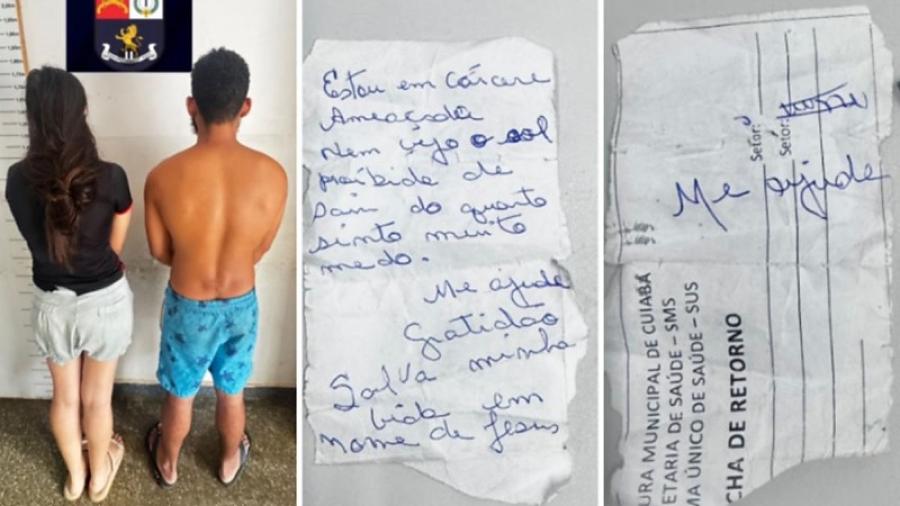 Estou em cárcere
Ameaçada
Nem vejo o sol
proibida de
sair do quarto
sinto muito
medo.
Me ajude
Gratidão
Salva minha
vida em
nome de Jesus
Me ajude
Setor:
Setor:
URA MUNICIPAL DE CUIABÁ
ETARIA DE SAÚDE - SMS
MA ÚNICO DE SAÚDE - SUS
CHA DE RETORNO